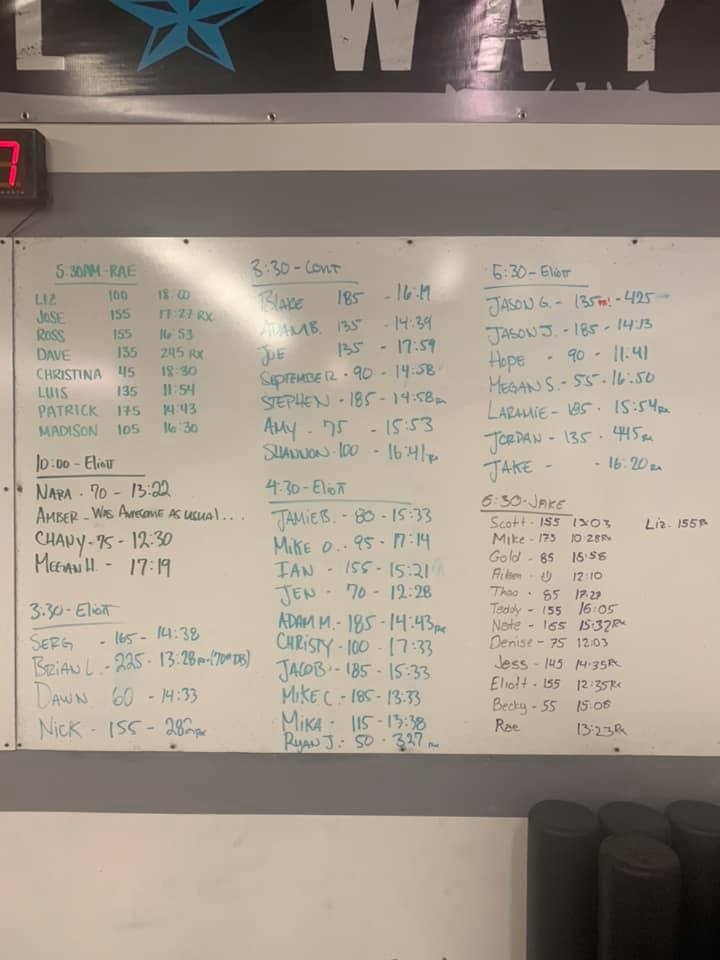 L WAY
7
5:30AM-RAE
LIZ 100 18:00
JOSE 155 17:27 RX
ROSS 155 16:53
DAVE 135 245 RX
CHRISTINA 45 18:30
LUIS 135 11:54
PATRICK 175 14:43
MADISON 105 16:30
10:00-Eliott
NARA - 70 - 13:22
AMBER - WAS AWESOME AS USUAL...
CHANY - 75 - 12:30
MEGAN H. - 17:19
3:30-Eliott
SERG - 165 - 14:38
BRIAN L. - 225 - 13:28 RX (70# DB)
DAWN 60 - 14:33
NICK - 155 - 282 RX
3:30-CONT
BLAKE 185 - 16:19
ADAM B. 135 - 14:39
JOE 135 - 17:59
SEPTEMBER - 90 - 14:58
STEPHEN - 185 - 14:58 RX
AMY - 75 - 15:53
SHANNON - 100 - 16:41 RX
4:30-Eliott
JAMIE B. - 80 - 15:33
MIKE O. - 95 - 17:14
IAN - 155 - 15:21
JEN - 70 - 12:28
ADAM M. - 185 - 14:43 RX
CHRISTY - 100 - 17:33
JACOB - 185 - 15:33
MIKE C. - 185 - 13:33
MIKA - 115 - 13:38
RYAN J. - 50 - 327 RX
5:30-Eliott
JASON G. - 135 PR! - 425
JASON J. - 185 - 14:13
HOPE - 90 - 11:41
MEGAN S. - 55 - 16:50
LARAMIE - 185 - 15:54 RX
JORDAN - 135 - 445 RX
JAKE - - 16:20 RX
6:30-JAKE
Scott - 155 13:03 Liz - 155
Mike - 175 10:28 Rx
Gold - 85 15:58
12:10
Thao - 85 17:29
Teddy - 155 16:05
Nate - 165 15:32 Rx
Denise - 75 12:03
Jess - 145 14:35 Rx
Eliott - 155 12:35 Rx
Becky - 55 15:08
Rae 13:23 Rx